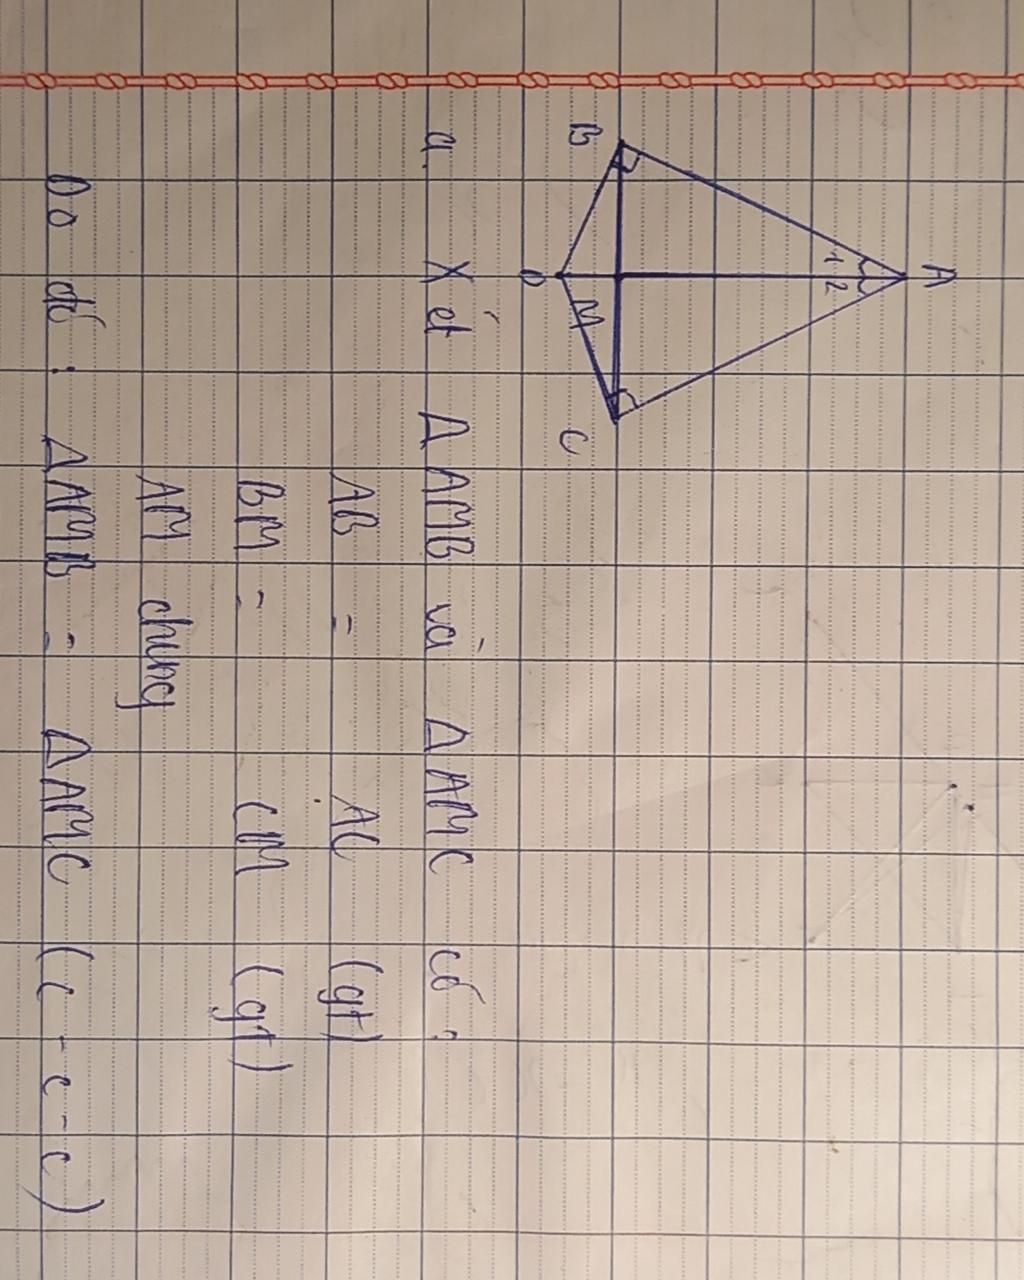 A
1 2
B
M
C
D
a. Xét Δ AMB và Δ AMC có :
AB = AC (gt)
BM = CM (gt)
AM chung
Do đó : ΔAMB = ΔAMC (c - c - c)